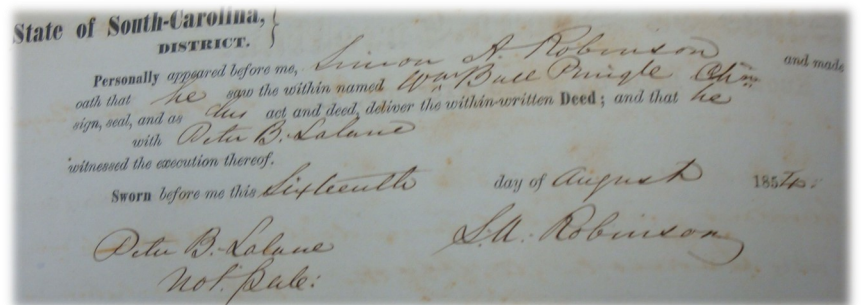 State of South-Carolina,
DISTRICT.
Personally appeared before me, Simon A. Robinson and made
oath that he saw the within named Wm Bull Pringle
sign, seal, and as his act and deed, deliver the within-written Deed; and that he
with Peter B. Lalane
witnessed the execution thereof.
Sworn before me this Sixteenth day of August 1854.
Peter B. Lalane S. A. Robinson
Not. Pub: